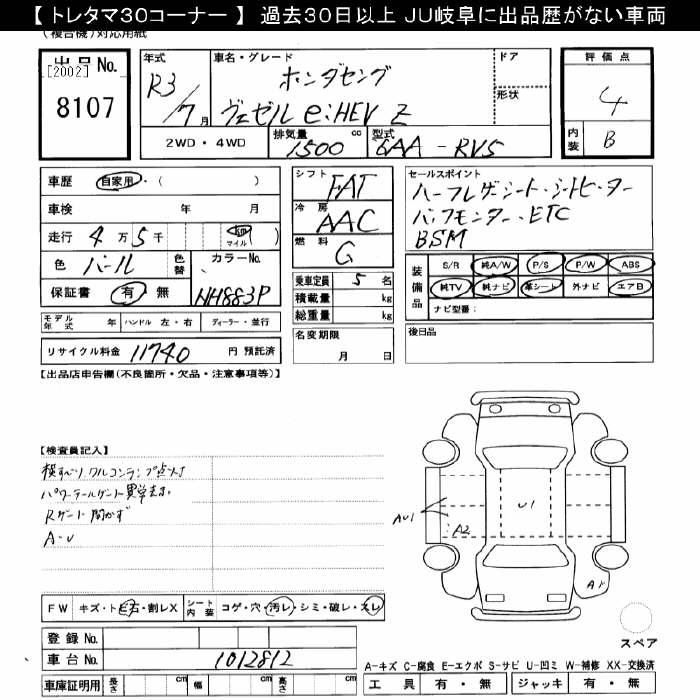 【 トレタマ30コーナー 】 過去30日以上 JU岐阜に出品歴がない車両
(複合機)対応用紙
出品No.
[2002]
8107
年式
R3/7月
車名・グレード
ホンダセング
ヴェゼル e:HEV Z
ドア
形状
評価点
4
内装
B
2WD・4WD
排気量
1500 cc
型式
6AA-RV5
車歴 自家用・( )
車検 年 月
走行 4万5千 km マイル ( )
色 パール
色替
カラーNo.
NH883P
保証書 有 無
シフト
FAT
冷房
AAC
燃料
G
乗車定員 5 名
積載量 kg
総重量 kg
セールスポイント
ハーフレザーシート・シートヒーター
バックモニター、ETC
BSM
装備品
S/R 純A/W P/S P/W ABS
純TV 純ナビ 革シート 外ナビ エアB
ナビ型番:
モデル年式 年 ハンドル 左・右 ディーラー・並行
リサイクル料金 11740 円 預託済
名変期限
月 日
後日品
【出品店申告欄(不良箇所・欠品・注意事項等)】
【検査員記入】
横すべり、コンランプ点灯
パワーテールゲート異常表示
Rゲート開かず
A-U
AU1
A2
U1
A1
FW キズ・ト ビ石・割レX
シート内装 コゲ・穴・汚レ・シミ・破レ・スレ
登録No.
車台No. 1012812
車庫証明用 長さ cm 幅 cm 高さ cm
スペア
A-キズ C-腐食 E-エクボ S-サビ U-凹ミ W-補修 XX-交換済
工具 有・無 ジャッキ 有・無